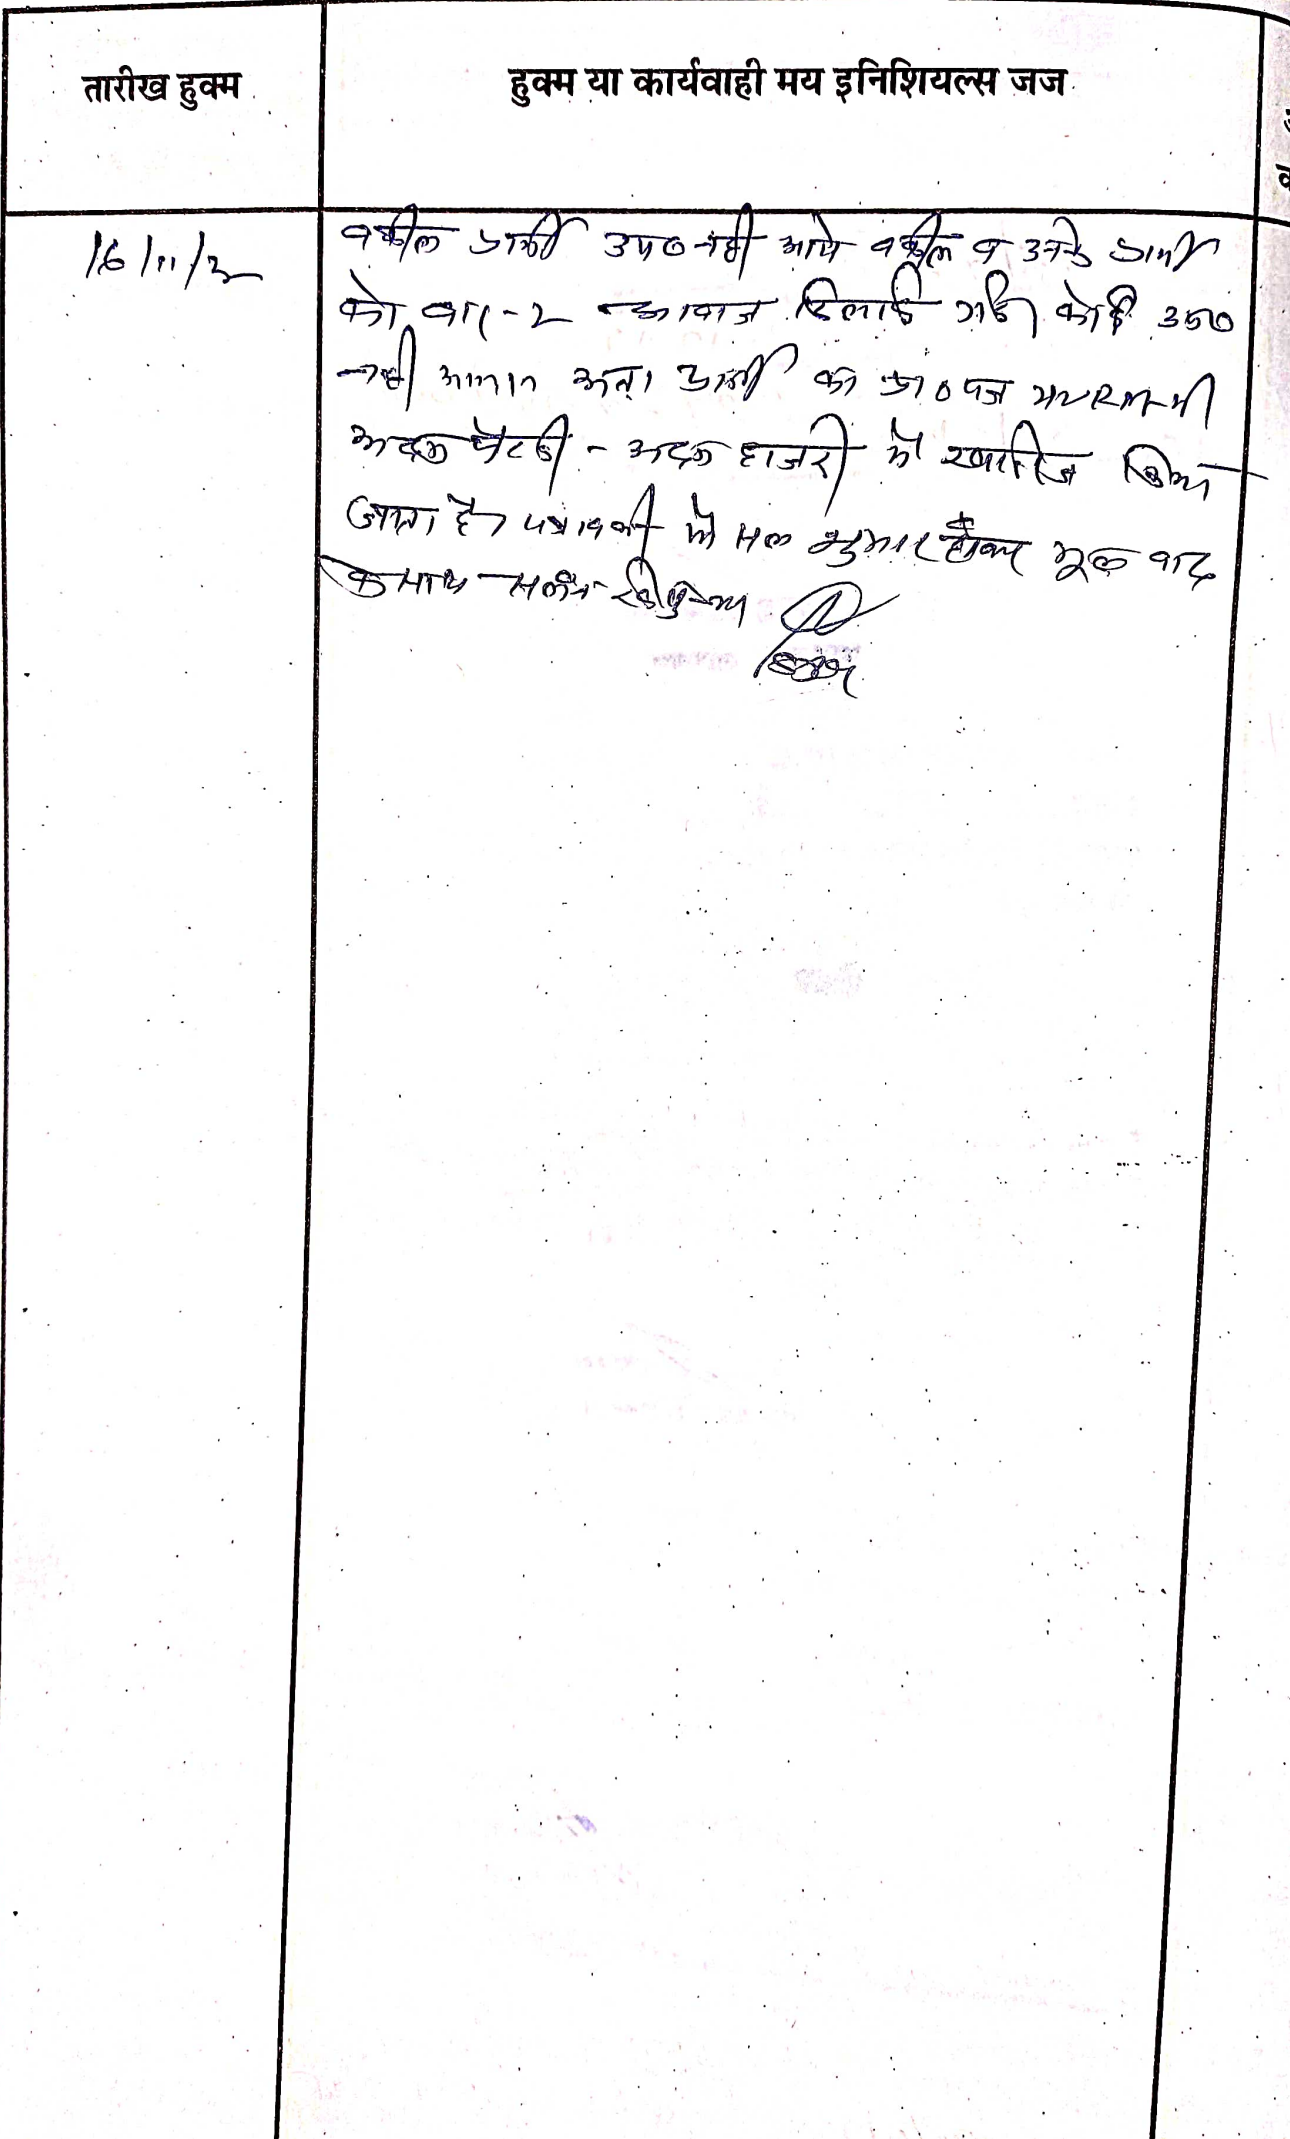 तारीख हुक्म
हुक्म या कार्यवाही मय इनिशियल्स जज
16/11/2
वकील प्रार्थी उप० नही आये वकील व उनके प्रार्थी
को बार-2 आवाज दिलाई गई। कोई उप०
नही आया। अतः प्रार्थी का प्रा० पत्र
अदम पैरवी - अदम हाजरी मे खारिज किया
जाता है। पत्रावली फैसल शुमार होकर मूल वाद
के साथ सलंग्न